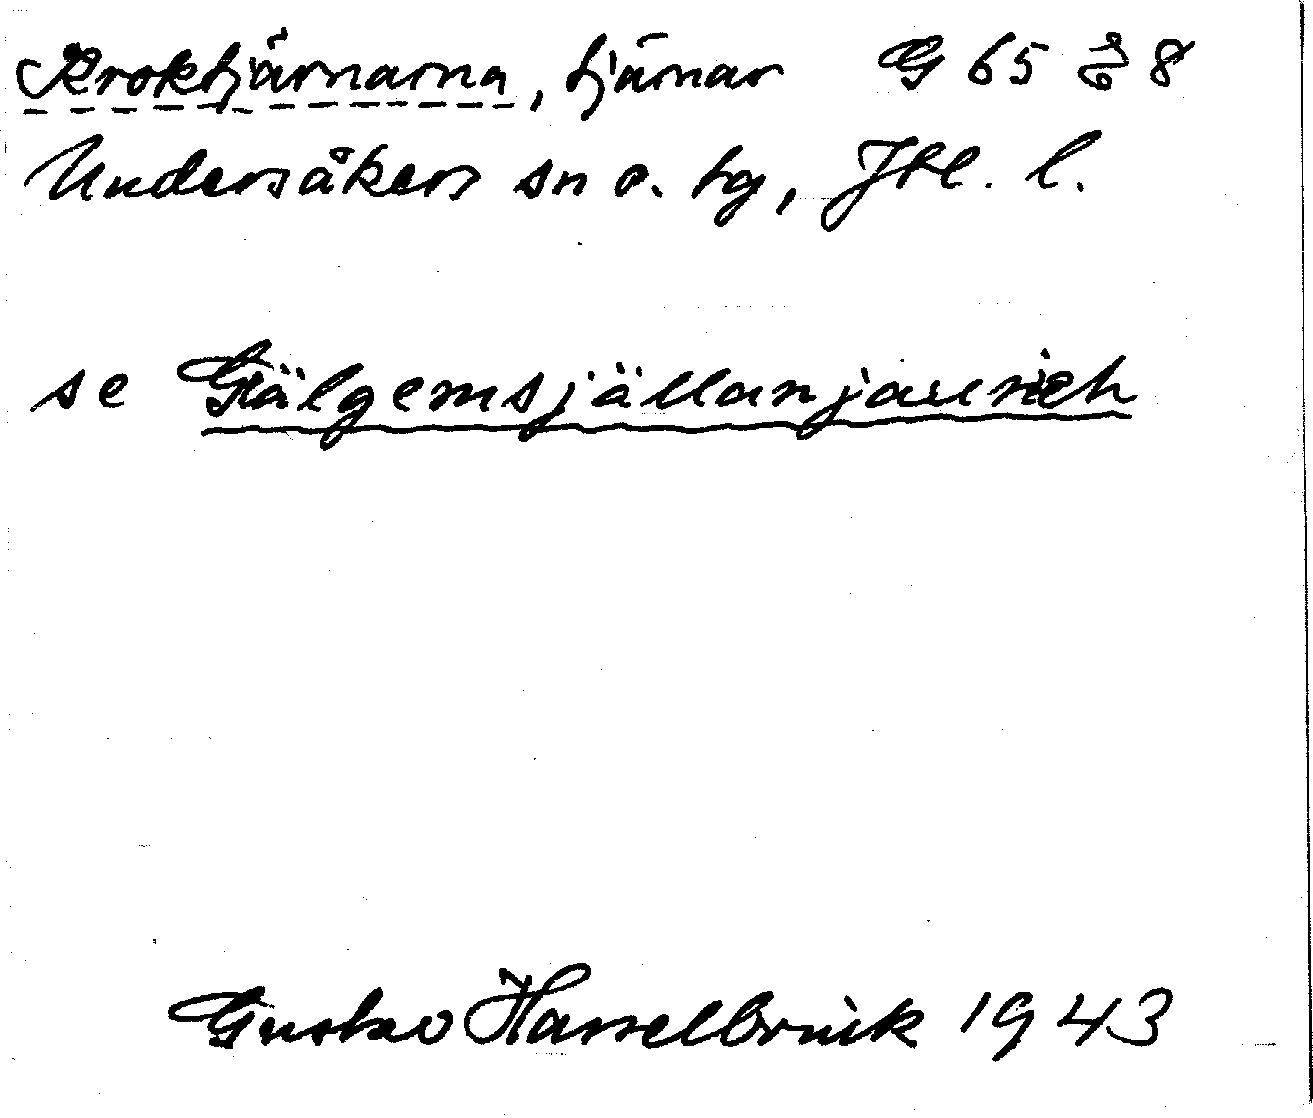 Kroktjärnarna, tjärnar G 65 & 8
Undersåkers sn o. tg, Jtl. l.
se Gälgemsjällanjauerieh
Gustav Hasselbrink 1943